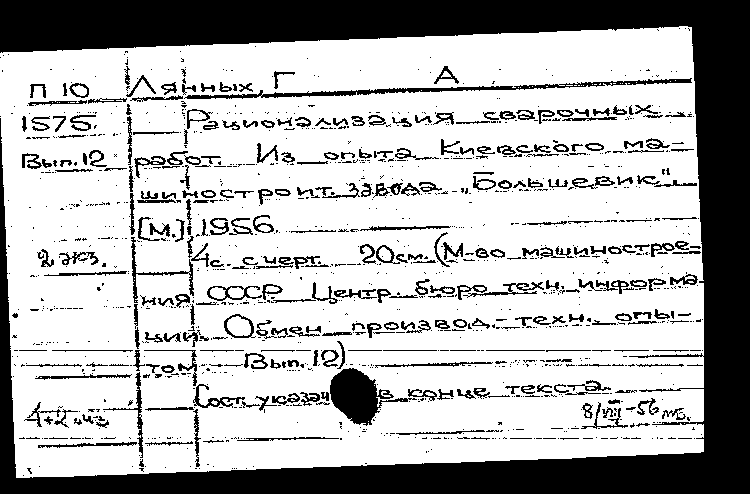 П 10 Лянных, Г А
1575. Рационализация сварочных
Вып. 12 работ. Из опыта Киевского ма-
шиностроит. завода „Большевик".
[М.], 1956
2 экз. 4с. с черт. 20см. (М-во машинострое-
ния СССР. Центр. бюро техн. информа-
ции. Обмен производ.-техн. опы-
том. Вып. 12)
Сост. указан в конце текста.
8/VIII-56